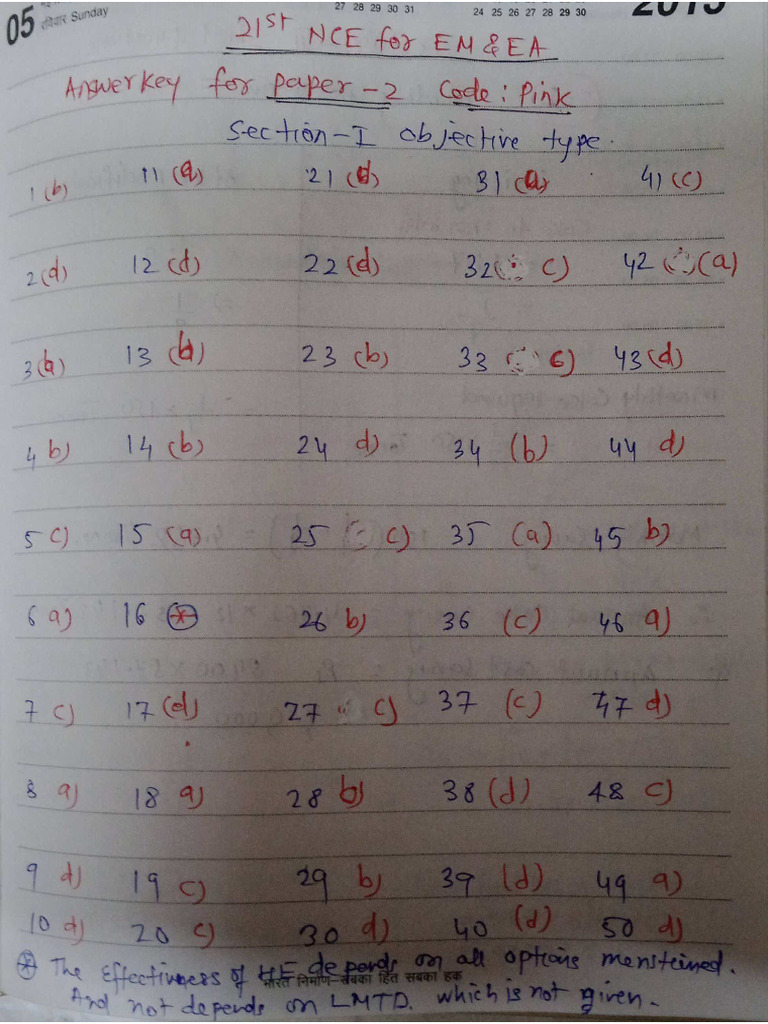 05 रविवार Sunday
27 28 29 30 31
24 25 26 27 28 29 30
2015
21ST NCE for EM & EA
Answer Key for paper-2 Code: Pink
Section-I objective type.
1 (b) 11 (a) 21 (d) 31 (a) 41 (c)
2 (d) 12 (d) 22 (d) 32 c) 42 (a)
3 (b) 13 (b) 23 (b) 33 c) 43 (d)
4 b) 14 (b) 24 d) 34 (b) 44 d)
5 c) 15 (a) 25 c) 35 (a) 45 b)
6 a) 16 * 26 b) 36 (c) 46 a)
7 c) 17 (d) 27 c) 37 (c) 47 d)
8 a) 18 a) 28 b) 38 (d) 48 c)
9 d) 19 c) 29 b) 39 (d) 49 a)
10 d) 20 c) 30 d) 40 (d) 50 d)
* The Effectivness of HE depends on all options menstained.
भारत निर्माण-सबका हित सबका हक
And not depends on LMTD. which is not given.